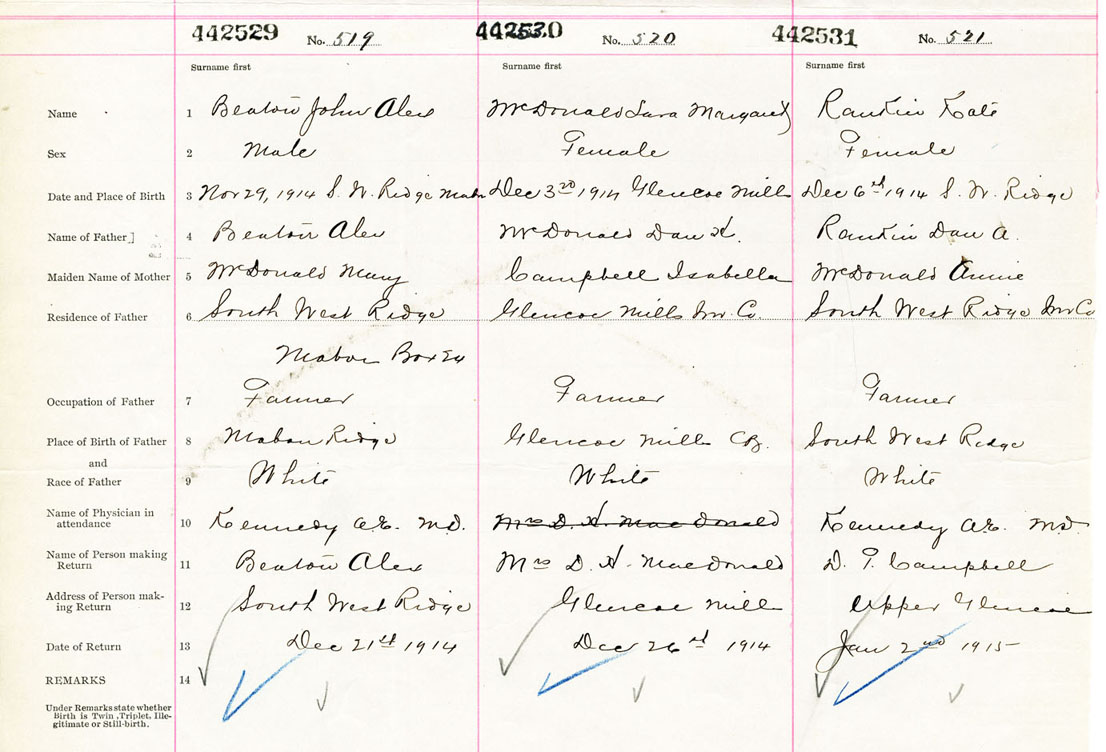 442529 No. 519 442530 No. 520 442531 No. 521
Surname first Surname first Surname first
Name 1 Beaton John Alex McDonald Sara Margaret Rankin Kate
Sex 2 Male Female Female
Date and Place of Birth 3 Nov 29, 1914 S. W. Ridge Mabou Dec 3rd 1914 Glencoe Mills Dec 6th 1914 S. W. Ridge
Name of Father] 4 Beaton Alex McDonald Dan H. Rankin Dan A.
Maiden Name of Mother 5 McDonald Mary Campbell Isabella McDonald Annie
Residence of Father 6 South West Ridge Glencoe Mills Inv. Co. South West Ridge Inv Co
Mabou Box
Occupation of Father 7 Farmer Farmer Farmer
Place of Birth of Father 8 Mabou Ridge Glencoe Mills CB. South West Ridge
and
Race of Father 9 White White White
Name of Physician in
attendance 10 Kennedy A.E. M.D. Mrs D. H. MacDonald Kennedy A.E. M.D.
Name of Person making
Return 11 Beaton Alex Mrs D. H. MacDonald D. P. Campbell
Address of Person mak-
ing Return 12 South West Ridge Glencoe Mills Upper Glencoe
Date of Return 13 Dec 21st 1914 Dec 26th 1914 Jan 2nd 1915
REMARKS 14
Under Remarks state whether
Birth is Twin, Triplet, Ille-
gitimate or Still-birth.